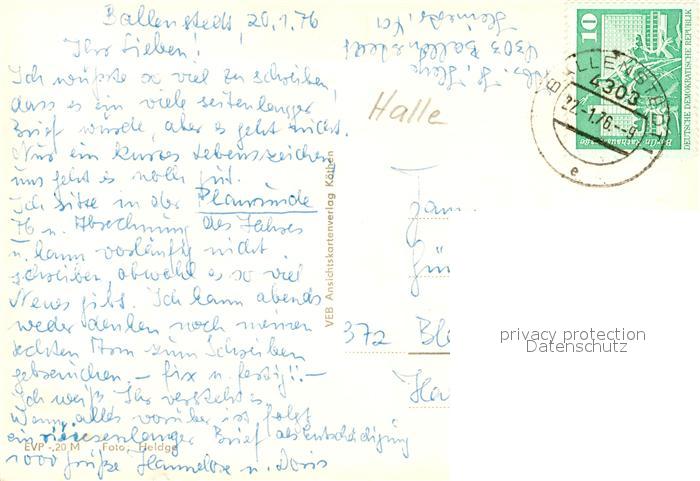 Ballenstedt 20.1.76
Ihr Lieben!
Ich wüßte so viel zu schreiben,
dass es ein viele seitenlanger
Brief würde, aber es geht nicht.
Nur ein kurzes Lebenszeichen
uns geht es noch gut.
Ich sitze in der Planrunde
76 u. Abrechnung des Jahres
u. kann vorläufig nicht
schreiben, obwohl es so viel
Neues gibt. Ich kann abends
weder denken noch meinen
rechten Arm zum Schreiben
gebrauchen, – fix u. fertig!! –
Ich weiß Ihr versteht es
Wenn alles vorüber ist folgt
ein riesenlanger Brief als Entschädigung
1000 Grüße Hannelore u. Doris
EVP -,20 M Foto: Heldge
VEB Ansichtskartenverlag Köthen
4303 Ballenstedt
Halle
Fam.
372 Bl
10
DEUTSCHE DEMOKRATISCHE REPUBLIK
Berlin, Rathausstraße
BALLENSTEDT
4303
22.-1.76.--9
e
privacy protection
Datenschutz